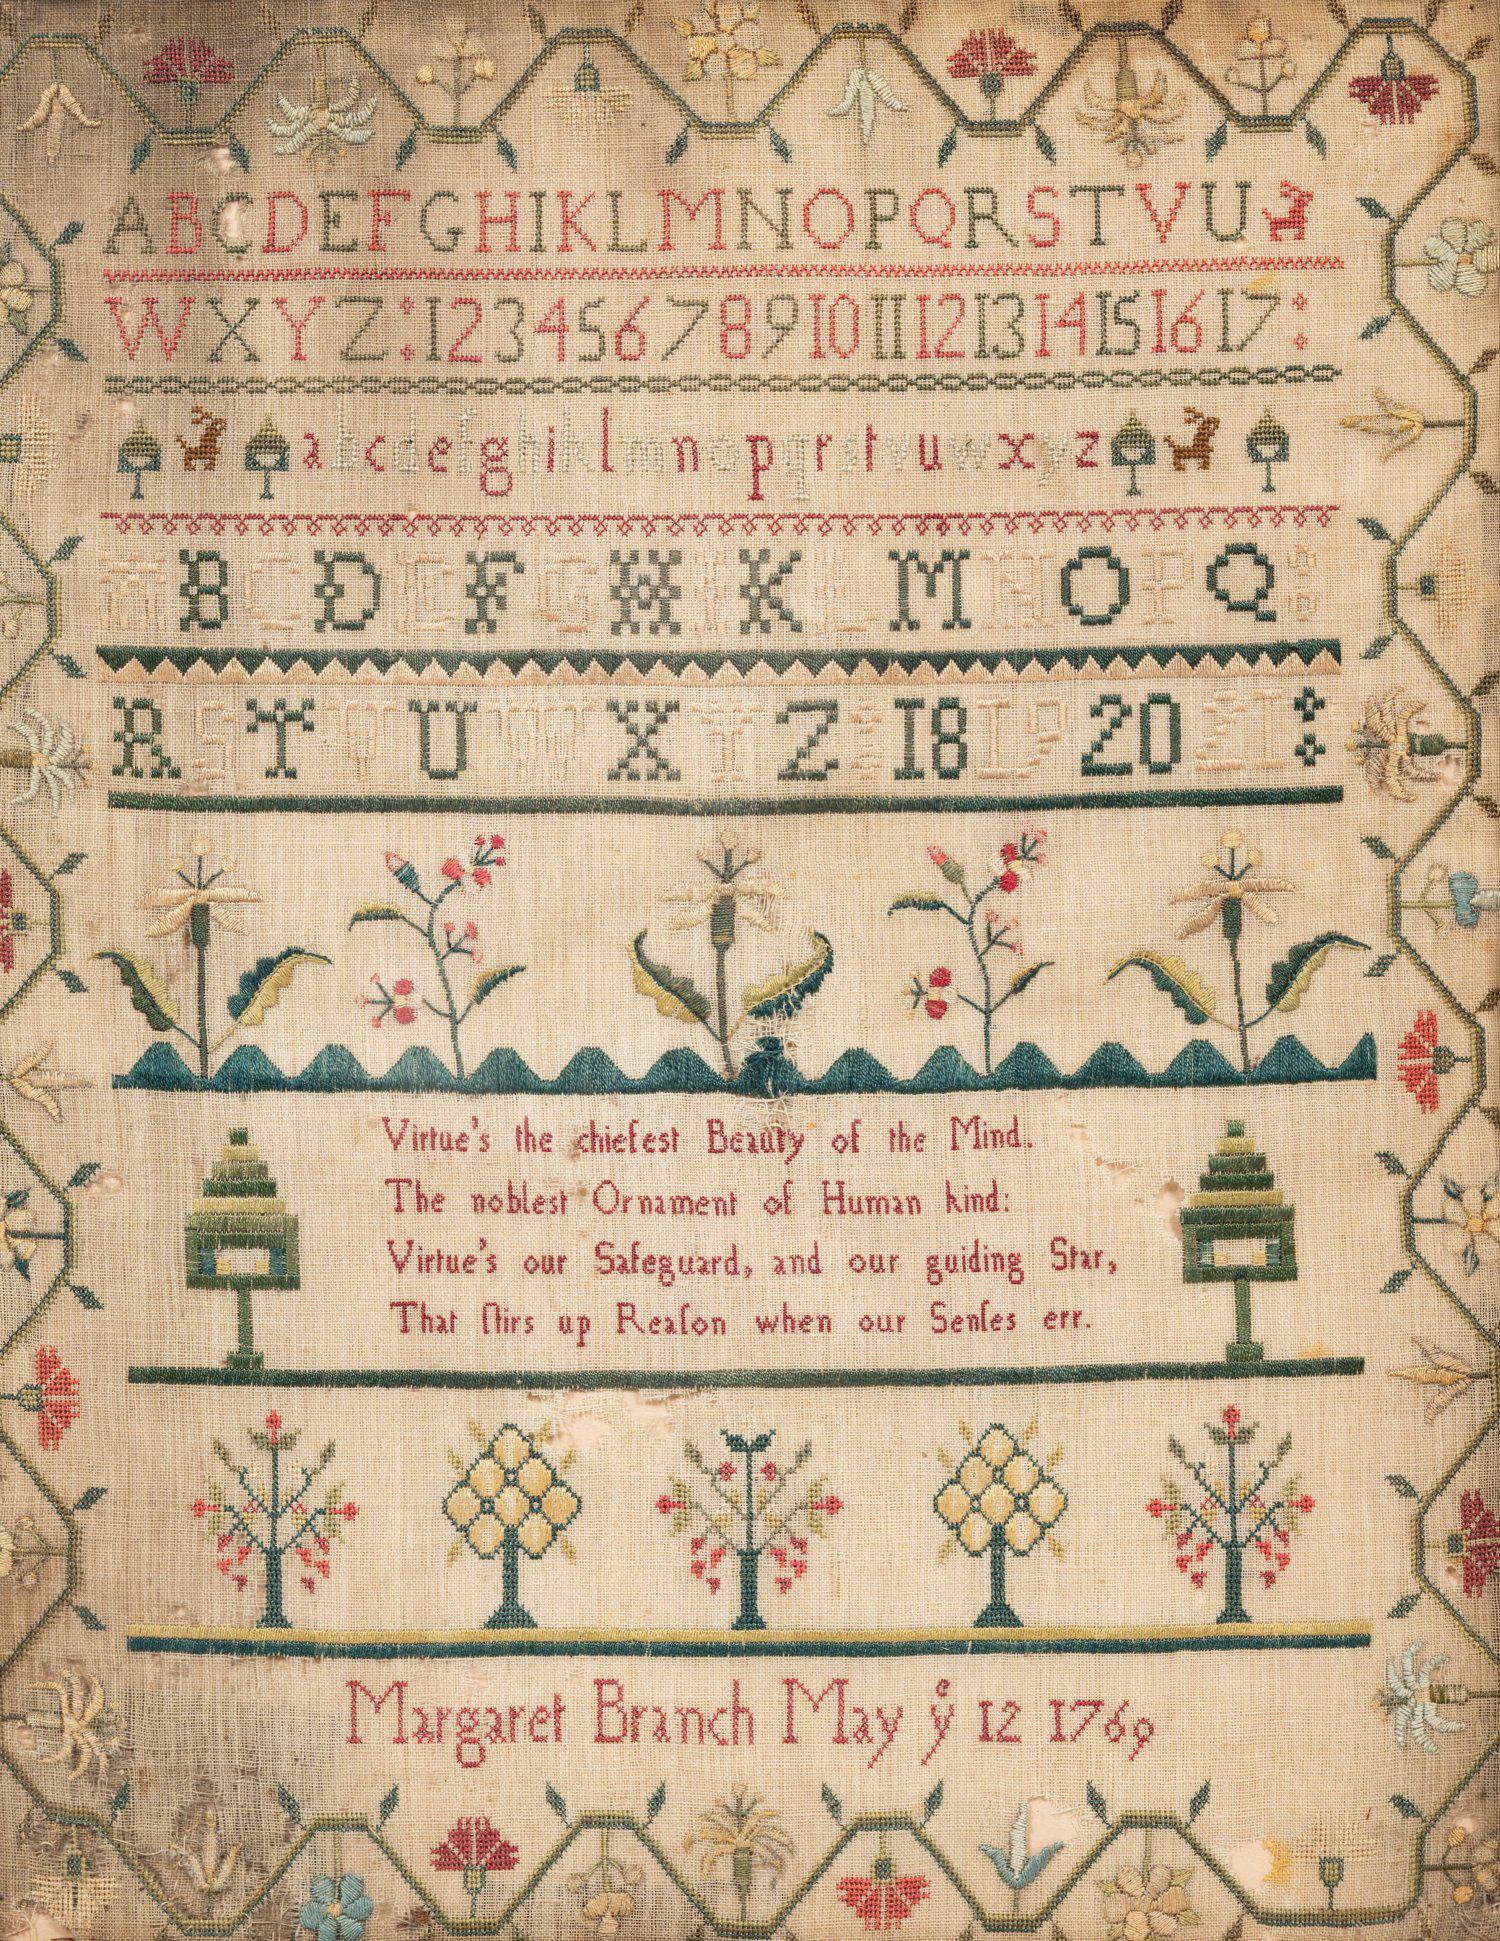 ABCDEFGHIKLMNOPQRSTVU
WXYZ:1234567891011121314151617:
abcdefghiklmnopqrstvuwxyz
ABCDEFGHIKLMNOPQ:
RSTVUWXYZ:18192021:
Virtue's the chiefest Beauty of the Mind.
The noblest Ornament of Human kind:
Virtue's our Safeguard, and our guiding Star,
That ſtirs up Reaſon when our Senſes err.
Margaret Branch May yͤ 12 1769